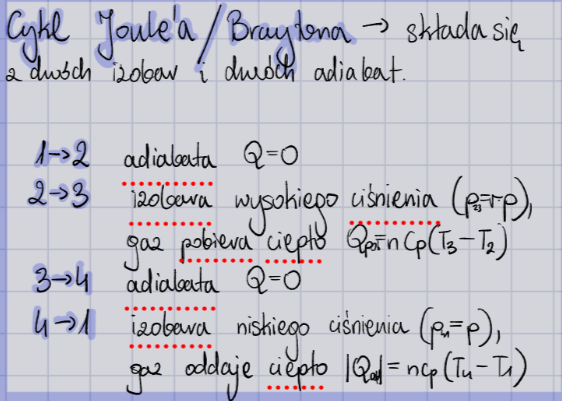 Cykl Joule'a / Braytona → składa się
z dwóch izobar i dwóch adiabat.
1→2 adiabata Q=0
2→3 izobara wysokiego ciśnienia (p₂₃=rp),
gaz pobiera ciepło Qpob=nCp(T₃-T₂)
3→4 adiabata Q=0
4→1 izobara niskiego ciśnienia (p₄₁=p),
gaz oddaje ciepło |Qodd|=ncp(T₄-T₁)